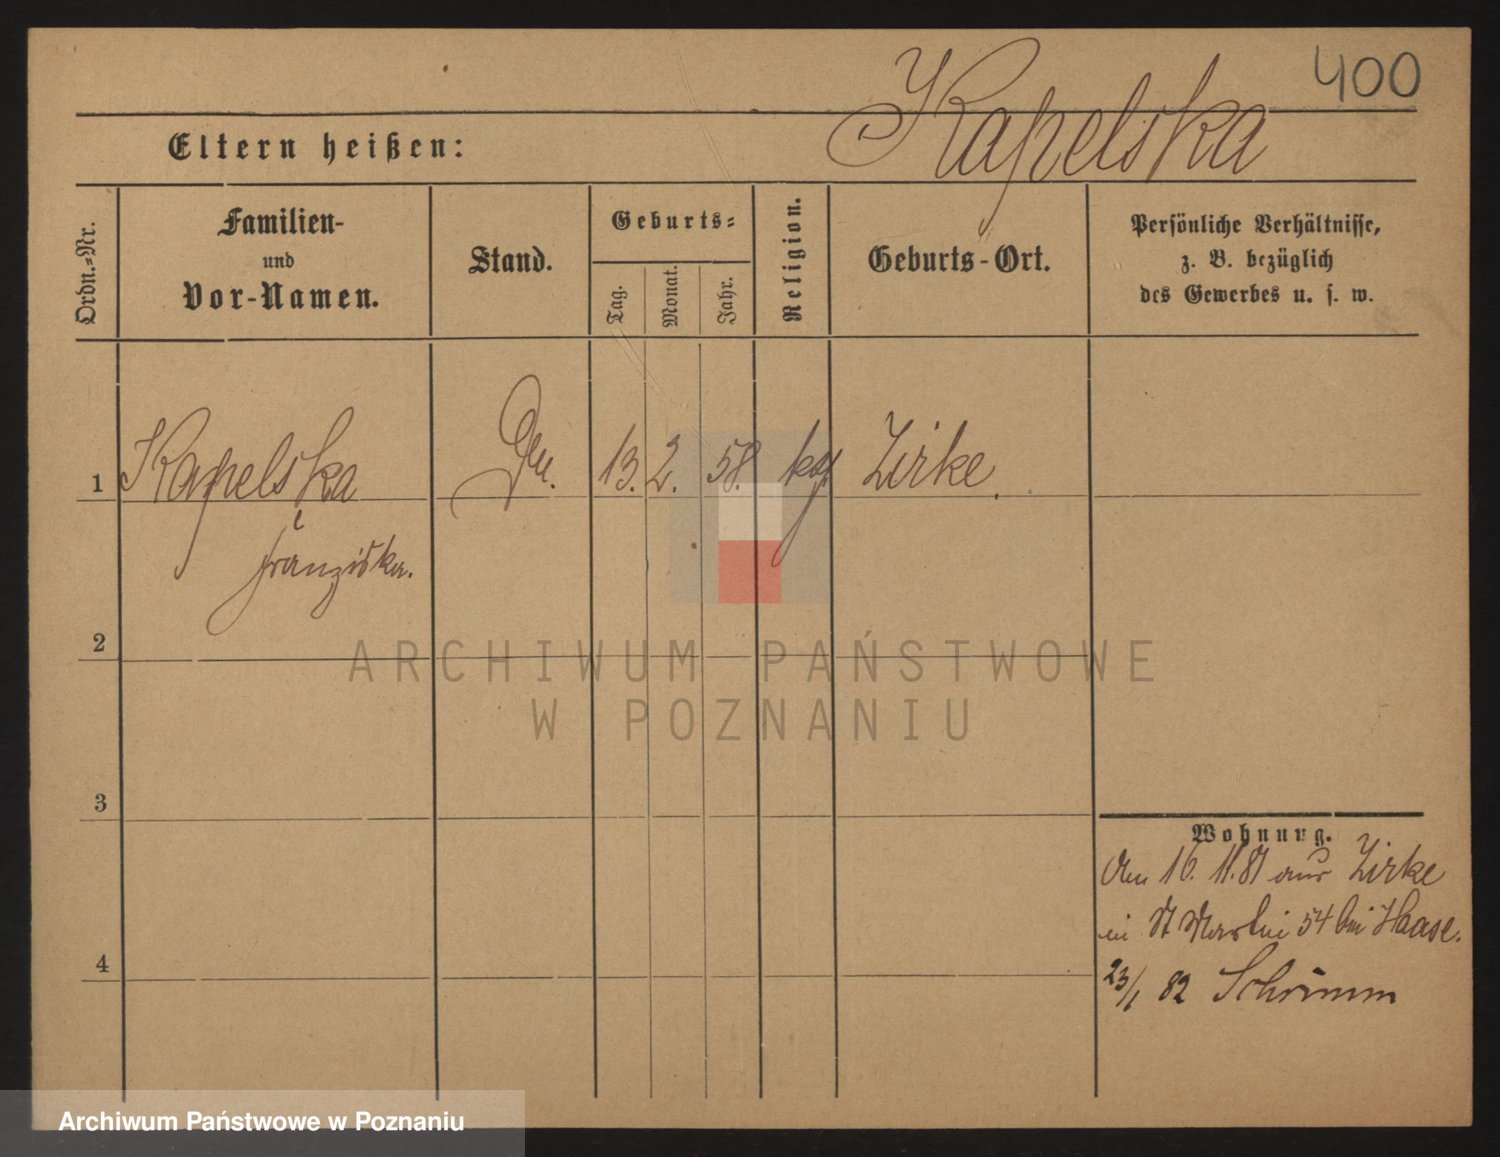 400
Kapelska
Eltern heißen:
Ordn.-Nr.
Familien-
und
Vor-Namen.
Stand.
Geburts-
Tag.
Monat.
Jahr.
Religion.
Geburts-Ort.
Persönliche Verhältnisse,
z. B. bezüglich
des Gewerbes u. s. w.
1 Kapelska 13. 2. 58. Zirke.
Franziska.
2
ARCHIWUM PAŃSTWOWE
W POZNANIU
3
Wohnung.
16. 11. 81 aus Zirke
in St Martin 54 bei Haase.
4
23/1 82 Schrimm
Archiwum Państwowe w Poznaniu